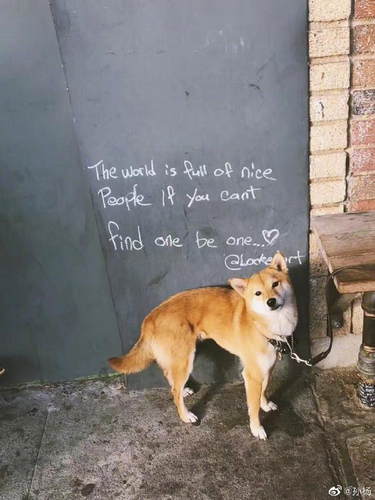 The world is full of nice
People If you cant
find one be one...♡
@孙杨